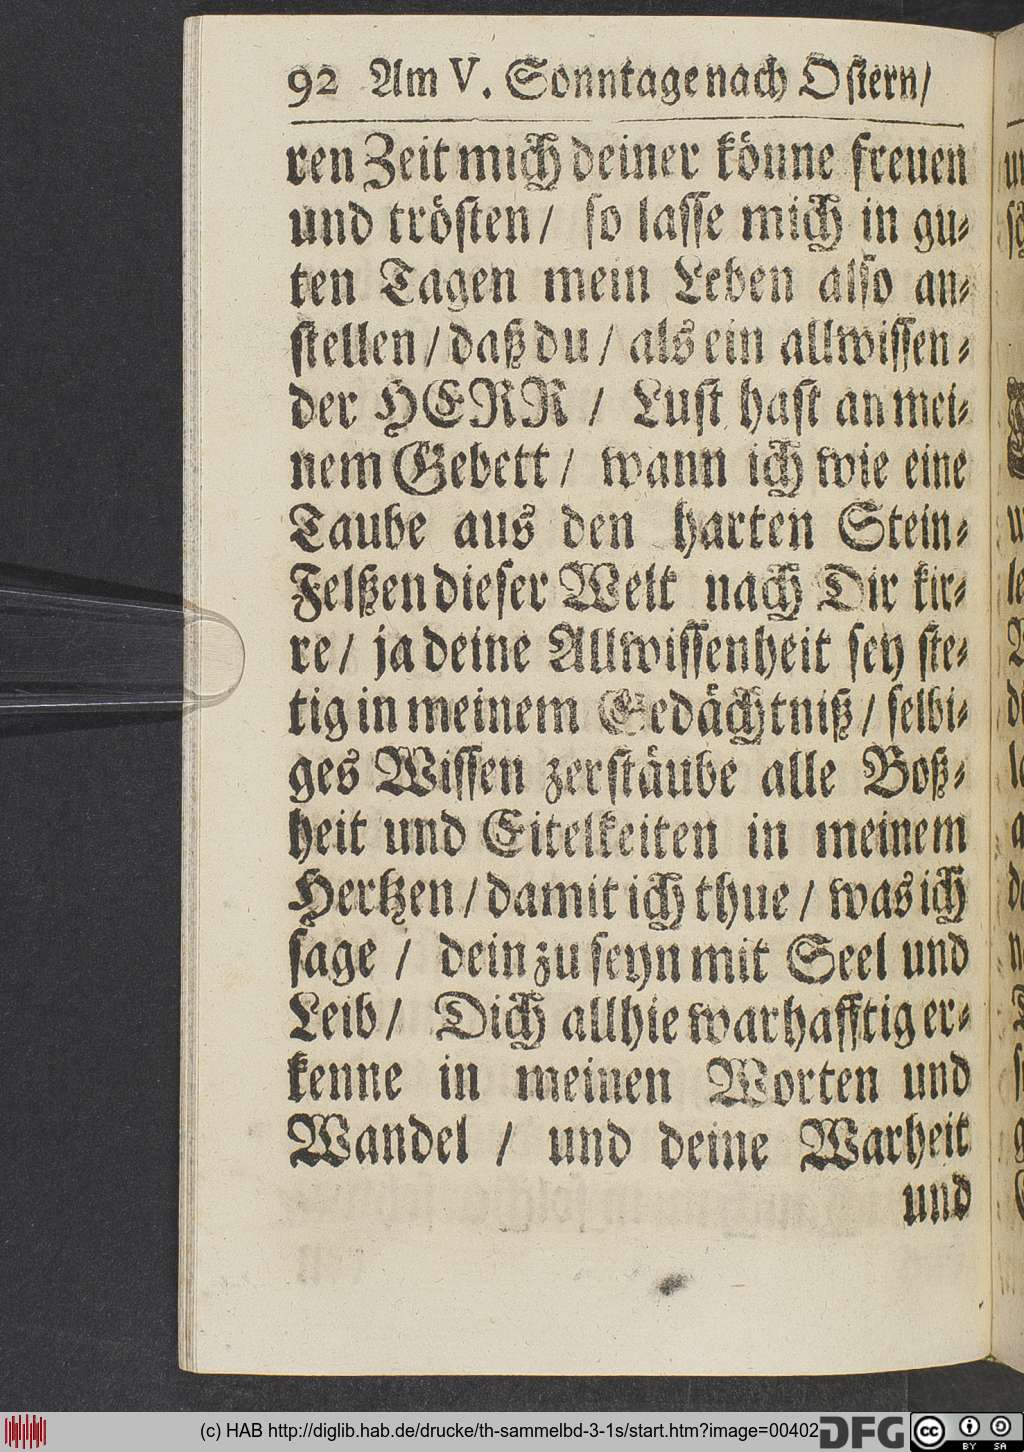 92 Am V. Sonntage nach Ostern/
ren Zeit mich deiner könne freuen
und trösten/ so lasse mich in gu-
ten Tagen mein Leben also an-
stellen/ daß du/ als ein allwissen-
der HERR/ Lust hast an mei-
nem Gebett/ wann ich wie eine
Taube aus den harten Stein-
Felßen dieser Welt nach Dir kir-
re/ ja deine Allwissenheit sey ste-
tig in meinem Gedächtniß/ selbi-
ges Wissen zerstäube alle Boß-
heit und Eitelkeiten in meinem
Hertzen/ damit ich thue/ was ich
sage/ dein zu seyn mit Seel und
Leib/ Dich allhie warhafftig er-
kenne in meinen Worten und
Wandel/ und deine Warheit
und
(c) HAB http://diglib.hab.de/drucke/th-sammelbd-3-1s/start.htm?image=00402
DFG
cc BY SA